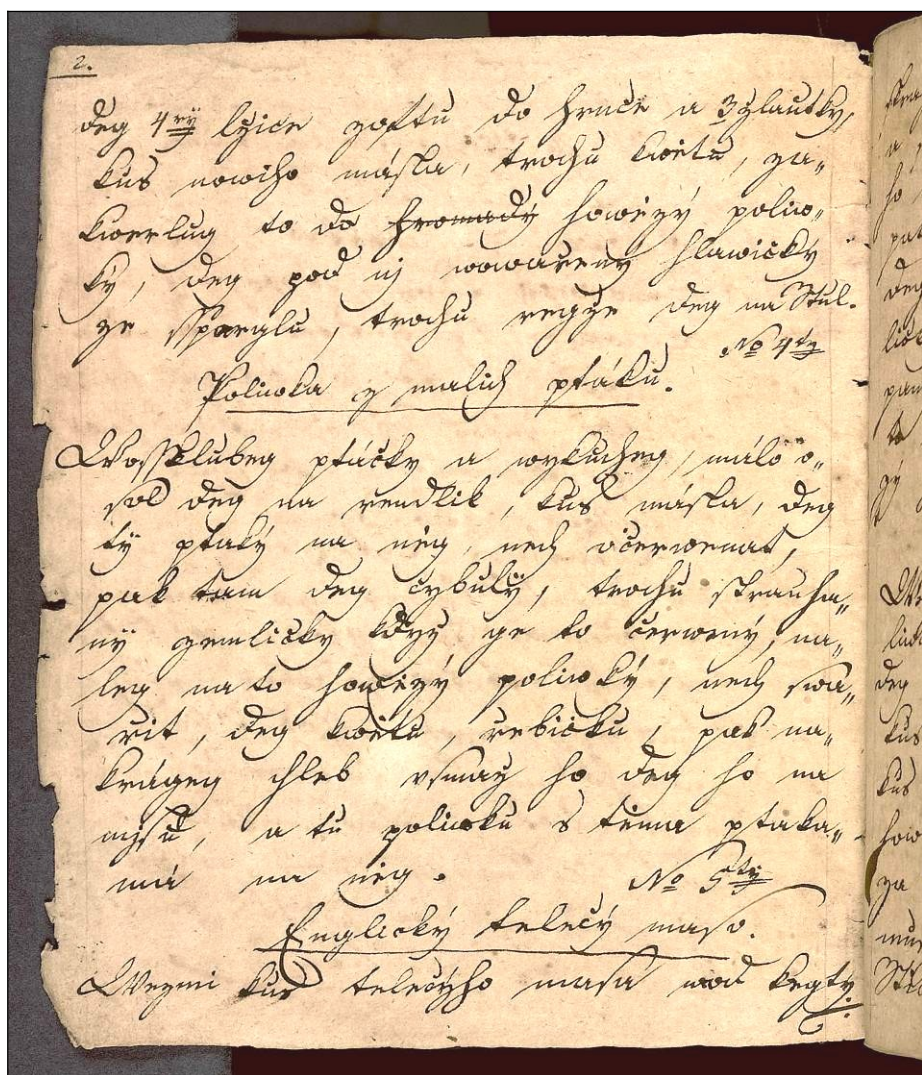 2.
deg 4ry lžice zaftu do hrnce a 3 zlautky,
kus nowiho másla, trochu kwětu, za„
kwerlug to do hromady howězý poliw„
ký, deg pod nj wowařeny hlawičky
ze ssparglu, trochu regže deg na Stul.
No 4tý
Poliwka z malich ptáků.
Wosskubeg ptáčky a wykucheg, málo o„
sol deg na rendlik, kus másla, deg
tý ptaký na něg, nech očerwenat,
pak tam deg cybuly, trochu strauha„
ný zemličky když ge to čerwený, na„
leg na to howězý poliwký, nech swa„
řit, deg kwětu, řebičku, pak na„
krágeg chleb usmaž ho deg ho na
mjsu, a tu poliwku s těma ptaka„
má na něg.
No 5tý
Englický telecý maso.
Wezmi kus telecýho masa wod kegty.